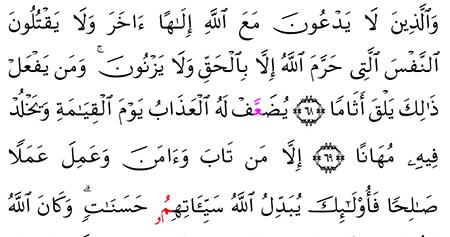 وَٱلَّذِينَ لَا يَدْعُونَ مَعَ ٱللَّهِ إِلَٰهًا ءَاخَرَ وَلَا يَقْتُلُونَ
ٱلنَّفْسَ ٱلَّتِى حَرَّمَ ٱللَّهُ إِلَّا بِٱلْحَقِّ وَلَا يَزْنُونَ ۚ وَمَن يَفْعَلْ
ذَٰلِكَ يَلْقَ أَثَامًا ﴿٦٨﴾ يُضَعَّفْ لَهُ ٱلْعَذَابُ يَوْمَ ٱلْقِيَٰمَةِ وَيَخْلُدْ
فِيهِۦ مُهَانًا ﴿٦٩﴾ إِلَّا مَن تَابَ وَءَامَنَ وَعَمِلَ عَمَلًا
صَٰلِحًا فَأُو۟لَٰٓئِكَ يُبَدِّلُ ٱللَّهُ سَيِّـَٔاتِهِمُۥ حَسَنَٰتٍ ۗ وَكَانَ ٱللَّهُ